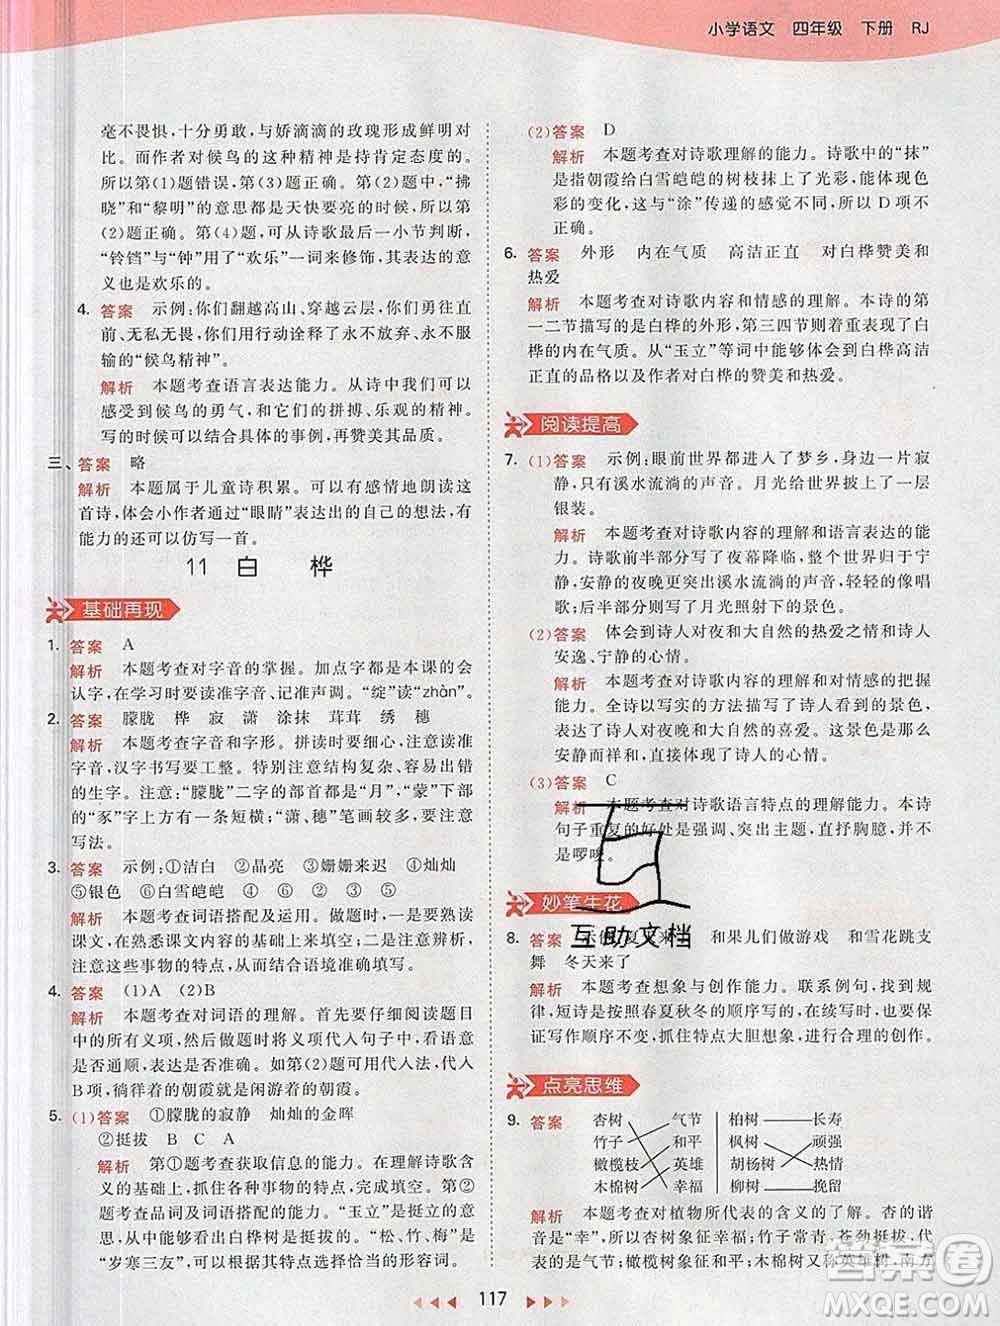 小学语文 四年级 下册 RJ
毫不畏惧,十分勇敢,与娇滴滴的玫瑰形成鲜明对
比。而作者对候鸟的这种精神是持肯定态度的。
所以第(1)题错误,第(3)题正确。第(2)题中,“拂
晓”和“黎明”的意思都是天快要亮的时候,所以第
(2)题正确。第(4)题,从诗歌最后一小节判断,
“铃铛”与“钟”用了“欢乐”一词来修饰,其表达的意
义也是欢乐的。
4. 答案 示例:你们翻越高山、穿越云层,你们勇往直
前,无私无畏,你们用行动诠释了永不放弃、永不服
输的“候鸟精神”。
解析 本题考查语言表达能力。从诗中我们可以
感受到候鸟的勇气,和它们的拼搏、乐观的精神。
写的时候可以结合具体的事例,再赞美其品质。
三、答案 略
解析 本题属于儿童诗积累。可以有感情地朗读这
首诗,体会小作者通过“眼睛”表达出的自己的想法,有
能力的还可以仿写一首。
11 白 桦
基础再现
1. 答案 A
解析 本题考查对字音的掌握。加点字都是本课的会
认字,在学习时要读准字音、记准声调。“绽”读“zhàn”。
2. 答案 朦胧 桦 寂 潇 涂抹 茸茸 绣 穗
解析 本题考查字音和字形。拼读时要细心,注意读准
字音,汉字书写要工整。特别注意结构复杂、容易出错
的生字。注意:“朦胧”二字的部首都是“月”,“蒙”下部
的“冢”字上有一条短横;“潇、穗”笔画较多,要注意
写法。
3. 答案 示例:①洁白 ②晶亮 ③姗姗来迟 ④灿灿
⑤银色 ⑥白雪皑皑 ④ ② ③ ⑤ ①
解析 本题考查词语搭配及运用。做题时一要熟读
课文,在熟悉课文内容的基础上来填空;二要注意辨析,
注意这些事物的特点,然后结合语境准确填写。
4. 答案 (1)A (2)B
解析 本题考查对词语的理解。首先要仔细阅读题目中
的所有义项,然后做题时要将义项代入句子中,看语意
是否相同,语句是否通顺。如第(2)题可用代入法,代入
B项,徜徉着的朝霞就是闲游着的朝霞。
5. (1)答案 ①朦胧的寂静 灿灿的金晖
②挺拔 B C A
解析 第①题考查获取信息的能力。在理解诗歌含
义的基础上,抓住各种事物的特点,完成填空。第②
题考查品词及词语的理解与运用。“玉立”是挺立的
意思,从中能看出白桦树的挺拔。“松、竹、梅”是
“岁寒三友”,根据其特点选择恰当的形容词。
(2)答案 D
解析 本题考查对诗歌理解的能力。诗歌中的“抹”
是指朝霞给白雪皑皑的树枝抹上了光彩,侧重于色
彩的变化,这与“涂”字的感觉不同,所以D项不正
确。
6. 答案 外形 内在气质 高洁正直 对白桦赞美和
热爱
解析 本题考查对诗歌内容和情感的理解。本诗的第
一二节描写的是白桦的外形,第三四节则着重写了白
桦的内在气质。从“玉立”等词中能够体会到白桦高洁
正直的品格以及作者对白桦的赞美和热爱。
阅读提高
7. (1)答案 示例:眼前世界都进入了梦乡,身边一片寂
静,只有溪水流淌的声音。月光给世界披上了一层
银装。
解析 本题考查对诗歌内容的理解和语言表达的能
力。诗歌前半部分写了夜幕降临,整个世界一片安
静,安静的夜晚更突出溪水流淌的声音就像唱着
歌;后半部分主要写了月光照射下的景色。
(2)答案 体会到诗人对夜和大自然的热爱之情和诗人
安逸、宁静的情感。
解析 本题考查对诗歌内容的理解和对情感的把握
能力。全诗以写实的方法描写了这样安静的夜晚,
表达了诗人对夜晚和大自然的喜爱,这样的景色是那么
安静而美好,直接体现了诗人的心情。
(3)答案 C
解析 本题考查对诗歌语言特点的理解能力。本诗
句子重复的好处是强调、突出主题,直抒胸臆,并不
是啰唆。
妙笔生花
8. 答案 示例:夏天来了 和果儿们做游戏 和雪花跳支
舞 冬天来了
解析 本题考查想象与创作能力。联系例句,找到规
律,短诗是按照春夏秋冬的情况来描写的,我们要保
证写作顺序不变,抓住特点大胆想象,进行合理的创作。
点亮思维
9. 答案 杏树 气节 柏树 长寿
竹子 和平 枫树 顽强
橄榄枝 英雄 胡杨树 热情
木棉树 幸福 柳树 挽留
解析 本题考查对植物所代表的含义的掌握。杏的谐
音是“幸”,所以杏树象征幸福;竹子常青、苍劲挺拔,代
表的是气节;橄榄树象征和平;木棉树又称英雄树,南方
117
互助文档
答案圈
MXQE.COM